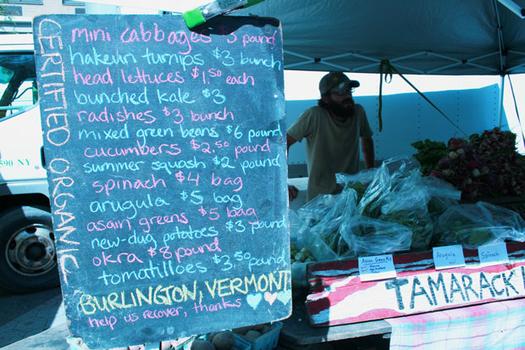 CERTIFIED ORGANIC
mini cabbages $3 pound
hakeuri turnips $3 bunch
head lettuces $1.50 each
bunched kale $3
radishes $3 bunch
mixed green beans $6 pound
cucumbers $2.50 pound
summer squash $2 pound
spinach $4 bag
arugula $5 bag
asain greens $5 bag
new-dug potatoes $3 pound
okra $8 pound
tomatilloes $3.50 pound
BURLINGTON, VERMONT
help us recover, thanks
Asian Greens
Arugula
Spinach
TAMARACK